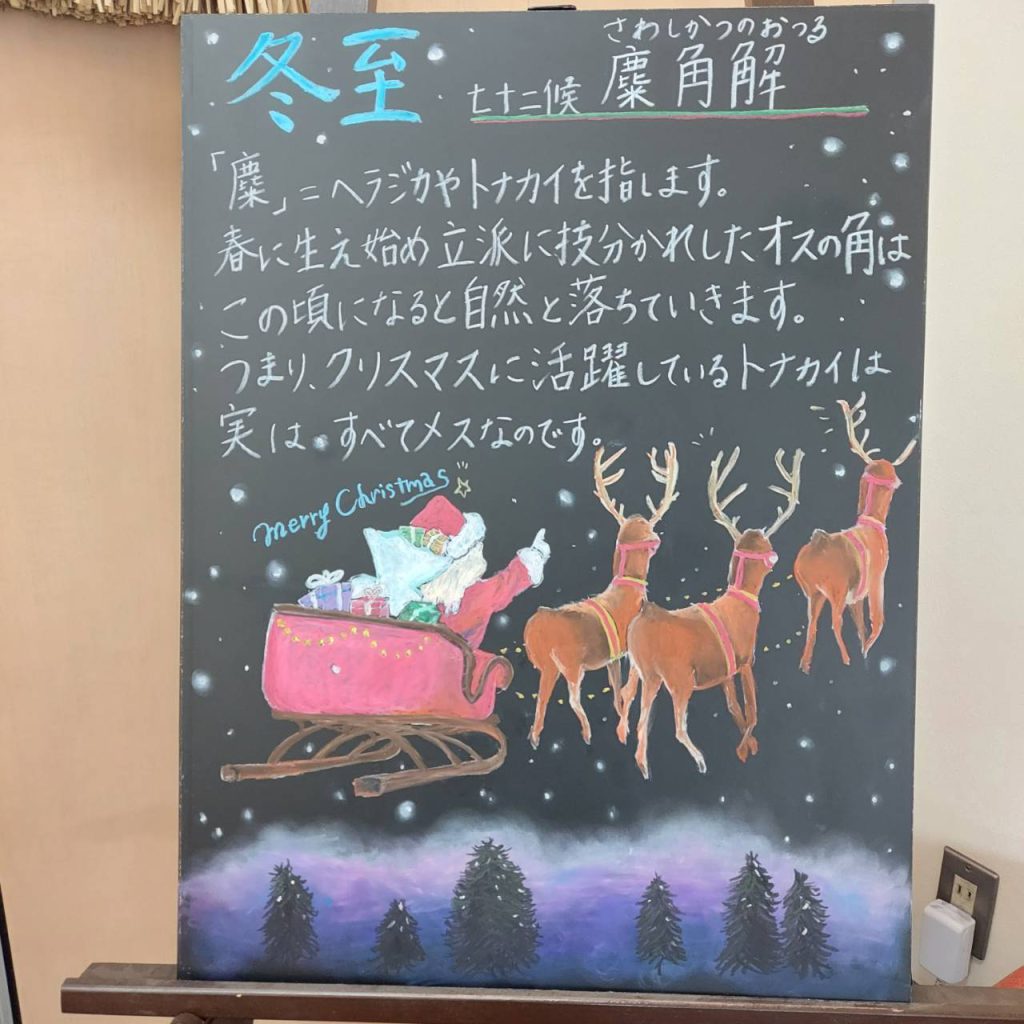 冬至
さわしかつのおつる
七十二候 麋角解
「麋」=ヘラジカやトナカイを指します。
春に生え始め立派に技分かれしたオスの角は
この頃になると自然と落ちていきます。
つまり、クリスマスに活躍しているトナカイは
実は、すべてメスなのです。
merry Christmas